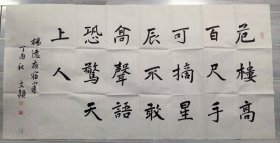 危樓高
百尺手
可摘星
辰不敢
高聲語
恐驚天
上人
楊億夜宿山寺
丁酉秋